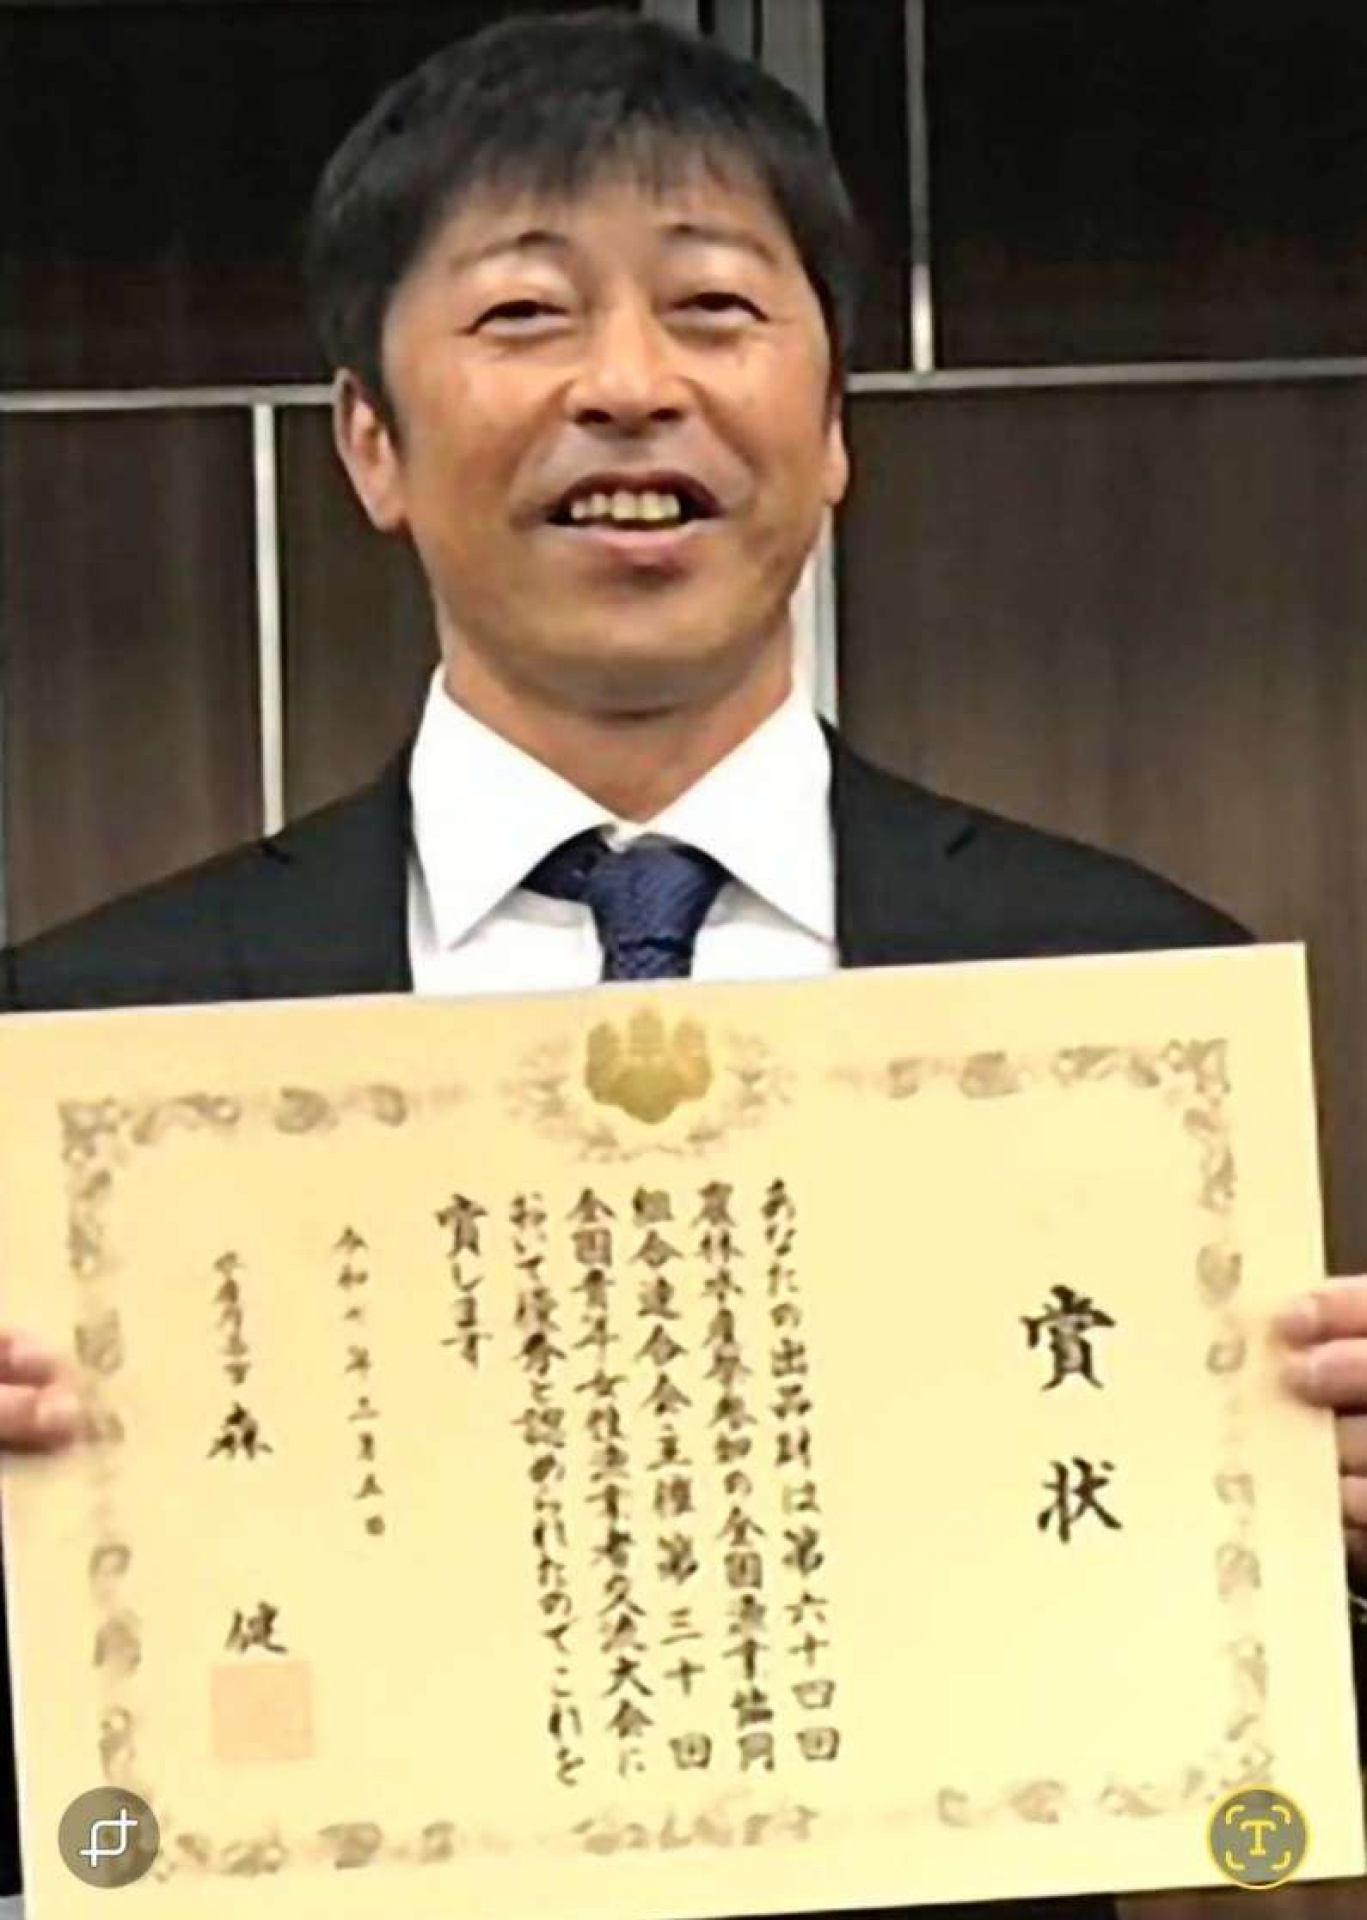 賞状
あなたの出品財は第六十四回
農林水産祭参加の全国漁業協同
組合連合会主催第三十回
全国青年女性漁業者交流大会に
おいて優秀と認められたのでこれを
賞します
令和七年三月五日
水産庁長官 森 健